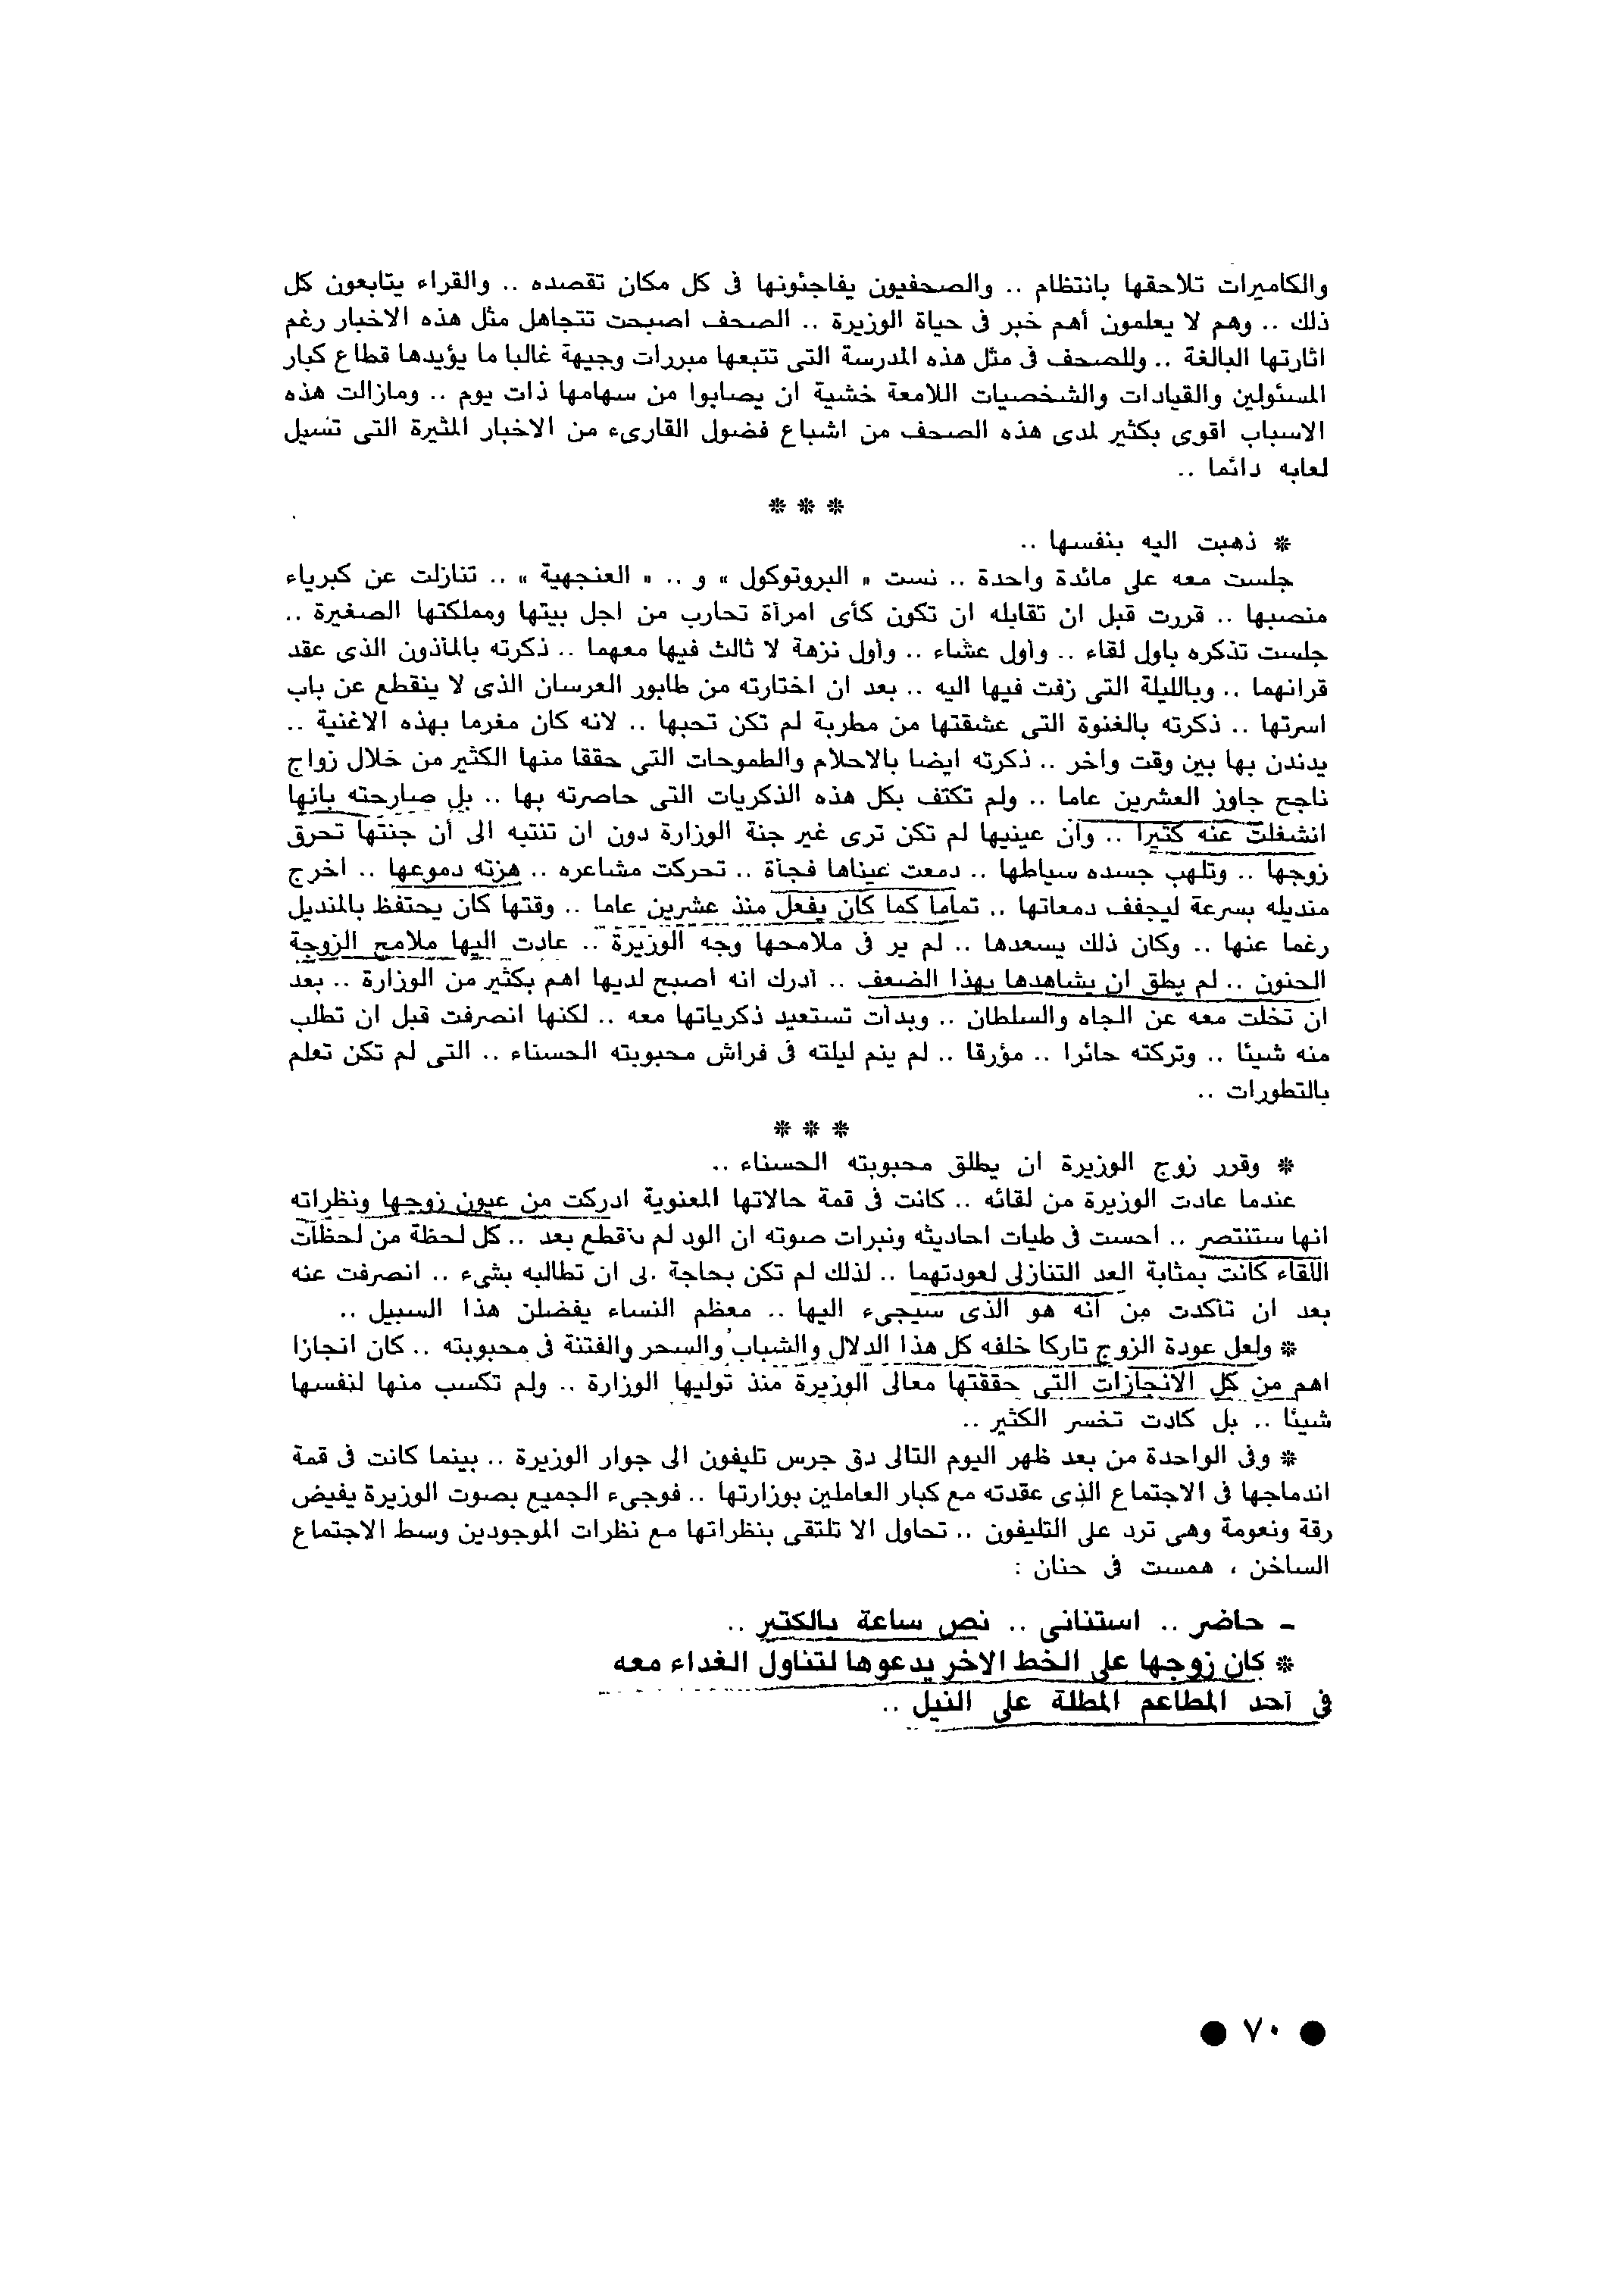 والكاميرات تلاحقها بانتظام .. والصحفيون يفاجئونها فى كل مكان تقصده .. والقراء يتابعون كل
ذلك .. وهم لا يعلمون أهم خبر فى حياة الوزيرة .. الصحف اصبحت تتجاهل مثل هذه الاخبار رغم
اثارتها البالغة .. وللصحف فى مثل هذه المدرسة التى تتبعها مبررات وجيهة غالبا ما يؤيدها قطاع كبار
المسئولين والقيادات والشخصيات اللامعة خشية ان يصابوا من سهامها ذات يوم .. ومازالت هذه
الاسباب اقوى بكثير لدى هذه الصحف من اشباع فضول القارىء من الاخبار المثيرة التى تسيل
لعابه دائما ..
* * *
* ذهبت اليه بنفسها ..
جلست معه على مائدة واحدة .. نست « البروتوكول » و .. « العنجهية » .. تنازلت عن كبرياء
منصبها .. قررت قبل ان تقابله ان تكون كأى امرأة تحارب من اجل بيتها ومملكتها الصغيرة ..
جلست تذكره باول لقاء .. وأول عشاء .. وأول نزهة لا ثالث فيها معهما .. ذكرته بالمأذون الذى عقد
قرانهما .. وبالليلة التى زفت فيها اليه .. بعد ان اختارته من طابور العرسان الذى لا ينقطع عن باب
اسرتها .. ذكرته بالغنوة التى عشقتها من مطربة لم تكن تحبها .. لانه كان مغرما بهذه الاغنية ..
يدندن بها بين وقت واخر .. ذكرته ايضا بالاحلام والطموحات التى حققا منها الكثير من خلال زواج
ناجح جاوز العشرين عاما .. ولم تكتف بكل هذه الذكريات التى حاصرته بها .. بل صارحته بانها
انشغلت عنه كثيرا .. وأن عينيها لم تكن ترى غير جنة الوزارة دون ان تنتبه الى أن جنتها تحرق
زوجها .. وتلهب جسده سياطها .. دمعت عيناها فجأة .. تحركت مشاعره .. هزته دموعها .. اخرج
منديله بسرعة ليجفف دمعاتها .. تماما كما كان يفعل منذ عشرين عاما .. وقتها كان يحتفظ بالمنديل
رغما عنها .. وكان ذلك يسعدها .. لم ير فى ملامحها وجه الوزيرة .. عادت اليها ملامح الزوجة
الحنون .. لم يطق ان يشاهدها بهذا الضعف .. أدرك انه اصبح لديها اهم بكثير من الوزارة .. بعد
ان تخلت معه عن الجاه والسلطان .. وبدأت تستعيد ذكرياتها معه .. لكنها انصرفت قبل ان تطلب
منه شيئا .. وتركته حائرا .. مؤرقا .. لم ينم ليلته فى فراش محبوبته الحسناء .. التى لم تكن تعلم
بالتطورات ..
* * *
* وقرر زوج الوزيرة ان يطلق محبوبته الحسناء ..
عندما عادت الوزيرة من لقائه .. كانت فى قمة حالاتها المعنوية ادركت من عيون زوجها ونظراته
انها ستنتصر .. احست فى طيات احاديثه ونبرات صوته ان الود لم ينقطع بعد .. كل لحظة من لحظات
اللقاء كانت بمثابة العد التنازلى لعودتهما .. لذلك لم تكن بحاجة الى ان تطالبه بشىء .. انصرفت عنه
بعد ان تأكدت من أنه هو الذى سيجىء اليها .. معظم النساء يفضلن هذا السبيل ..
* ولعل عودة الزوج تاركا خلفه كل هذا الدلال والشباب والسحر والفتنة فى محبوبته .. كان انجازا
اهم من كل الانجازات التى حققتها معالى الوزيرة منذ توليها الوزارة .. ولم تكسب منها لنفسها
شيئا .. بل كادت تخسر الكثير ..
* وفى الواحدة من بعد ظهر اليوم التالى دق جرس تليفون الى جوار الوزيرة .. بينما كانت فى قمة
اندماجها فى الاجتماع الذى عقدته مع كبار العاملين بوزارتها .. فوجىء الجميع بصوت الوزيرة يفيض
رقة ونعومة وهى ترد على التليفون .. تحاول الا تلتقى بنظراتها مع نظرات الموجودين وسط الاجتماع
الساخن ، همست فى حنان :
- حاضر .. استنانى .. نص ساعة بالكتير ..
* كان زوجها على الخط الاخر يدعوها لتناول الغداء معه
فى أحد المطاعم المطلة على النيل ..
● ٧٠ ●